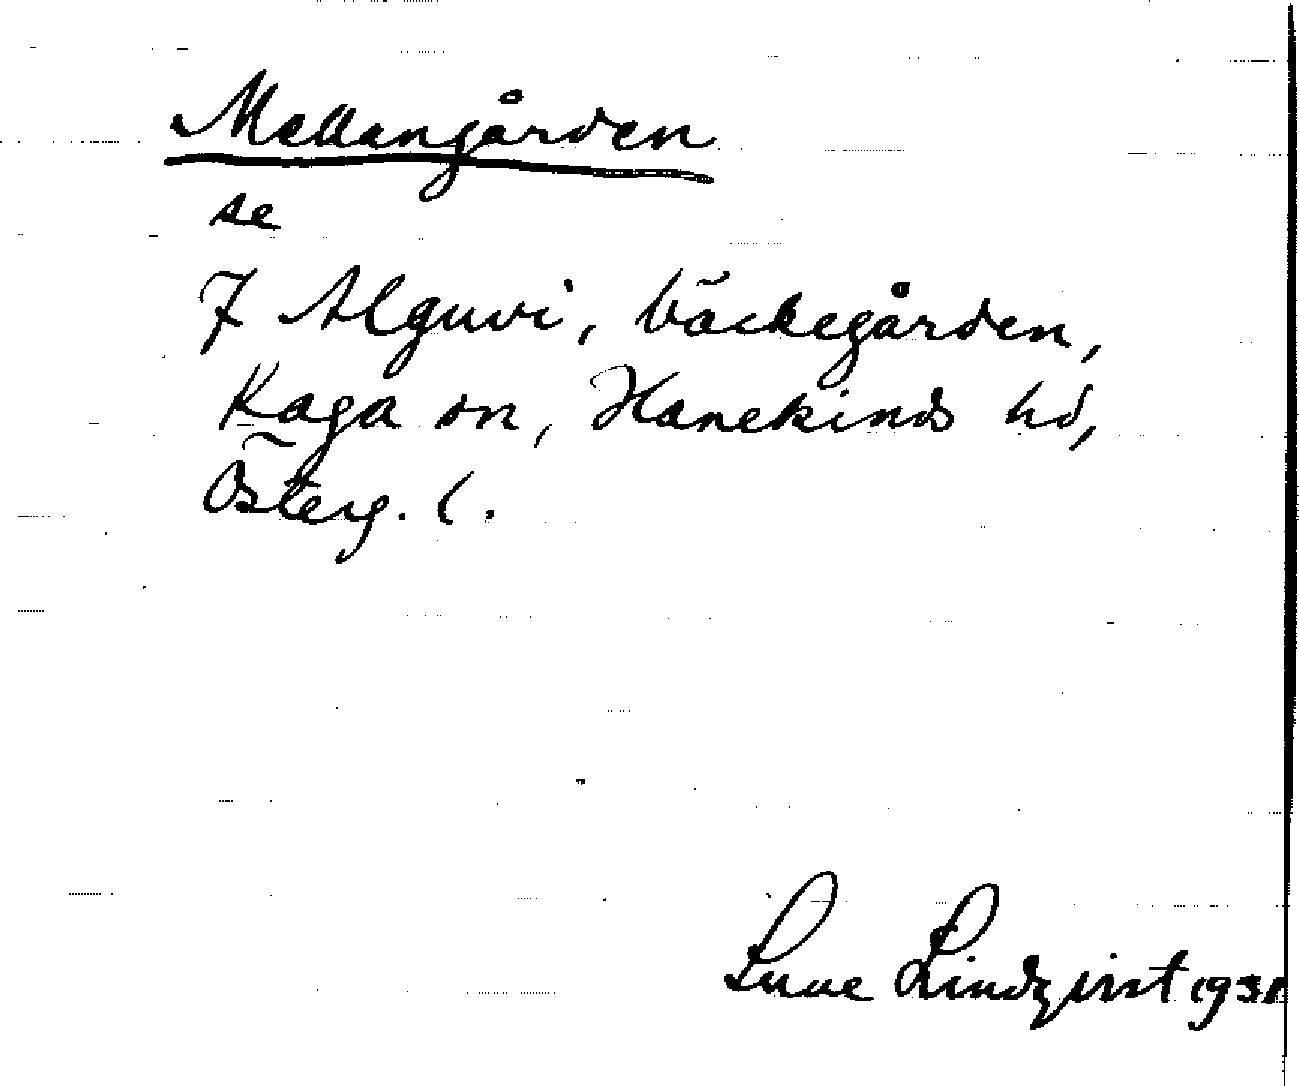 Mellangården
se
7 Alguvi, Bäckegården,
Kaga sn, Hanekinds hd,
Österg. l.
Sune Lindqvist 1931